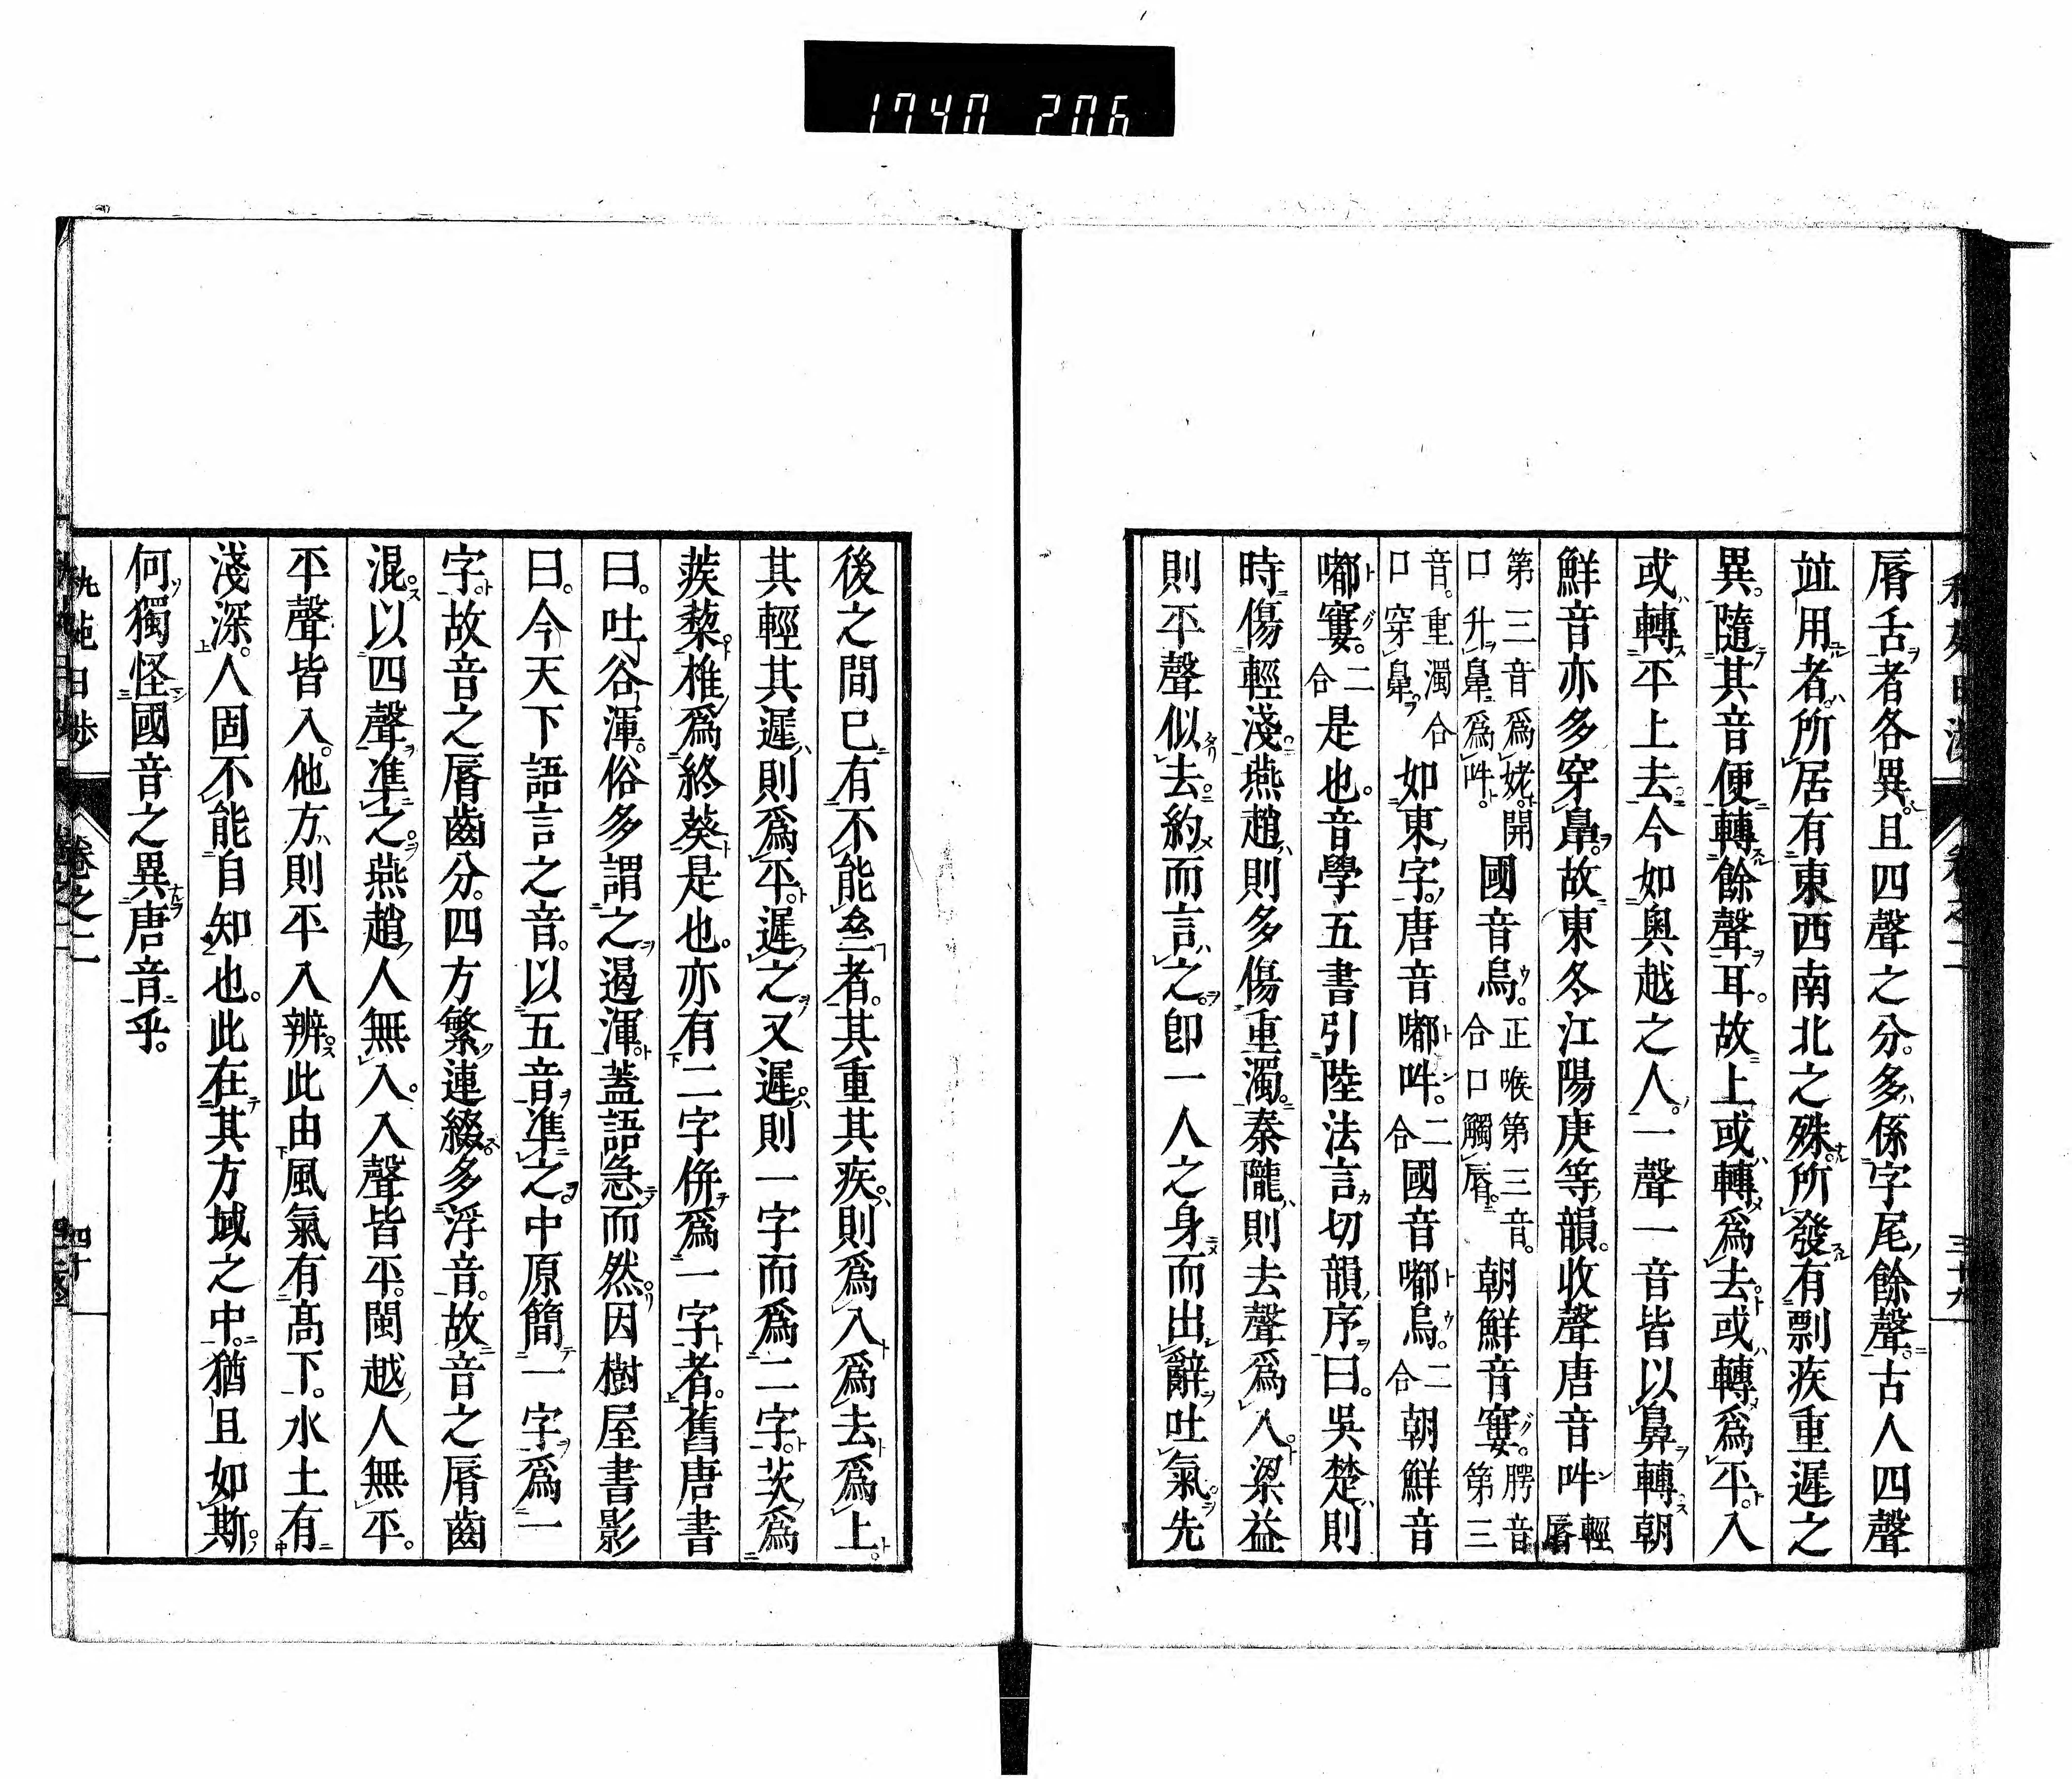 1740 206
卷之二
三十九
脣舌者各異且四聲之分。多係字尾餘聲。古人四聲
竝用者所居有東西南北之殊所發有剽疾重遲之
異。隨其音便轉餘聲耳。故上或轉爲去或轉爲平。入
或轉平上去今如奧越之人。一聲一音皆以鼻轉朝
鮮音亦多穿鼻。故東冬江陽庚等韻。收聲唐音吽輕脣
第三音爲姥。開口升鼻爲吽。國音烏。正喉第三音。合口觸脣。朝鮮音寠。腭音第三
音。重濁合口穿鼻。如東字。唐音嘟吽。二合國音嘟烏。二合朝鮮音
嘟寠。二合是也。音學五書引陸法言切韻序曰。吳楚則
時傷輕淺。燕趙則多傷重濁。秦隴則去聲爲入梁益
則平聲似去。約而言之。卽一人之身而出辭吐氣。先
後之間已有不能叁者。其重其疾。則爲入爲去爲上。
其輕其遲則爲平。遲之又遲。則一字而爲二字。茨爲
蒺藜椎爲終葵是也。亦有二字併爲一字者。舊唐書
曰。吐谷渾。俗多謂之退渾。蓋語急而然。因樹屋書影
曰。今天下語言之音。以五音準之。中原簡一字爲一
字。故音之脣齒分。四方繁連綴多浮音。故音之脣齒
混。以四聲準之。燕趙人無入。入聲皆平。閩越人無平。
平聲皆入。他方則平入辨。此由風氣有高下。水土有
淺深。人固不能自知也。此在其方域之中。猶且如斯。
何獨怪國音之異唐音乎。
卷之二
四十